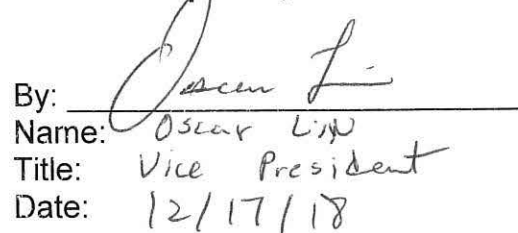 By: Oscar Lin
Name: Oscar Lin
Title: Vice President
Date: 12/17/18